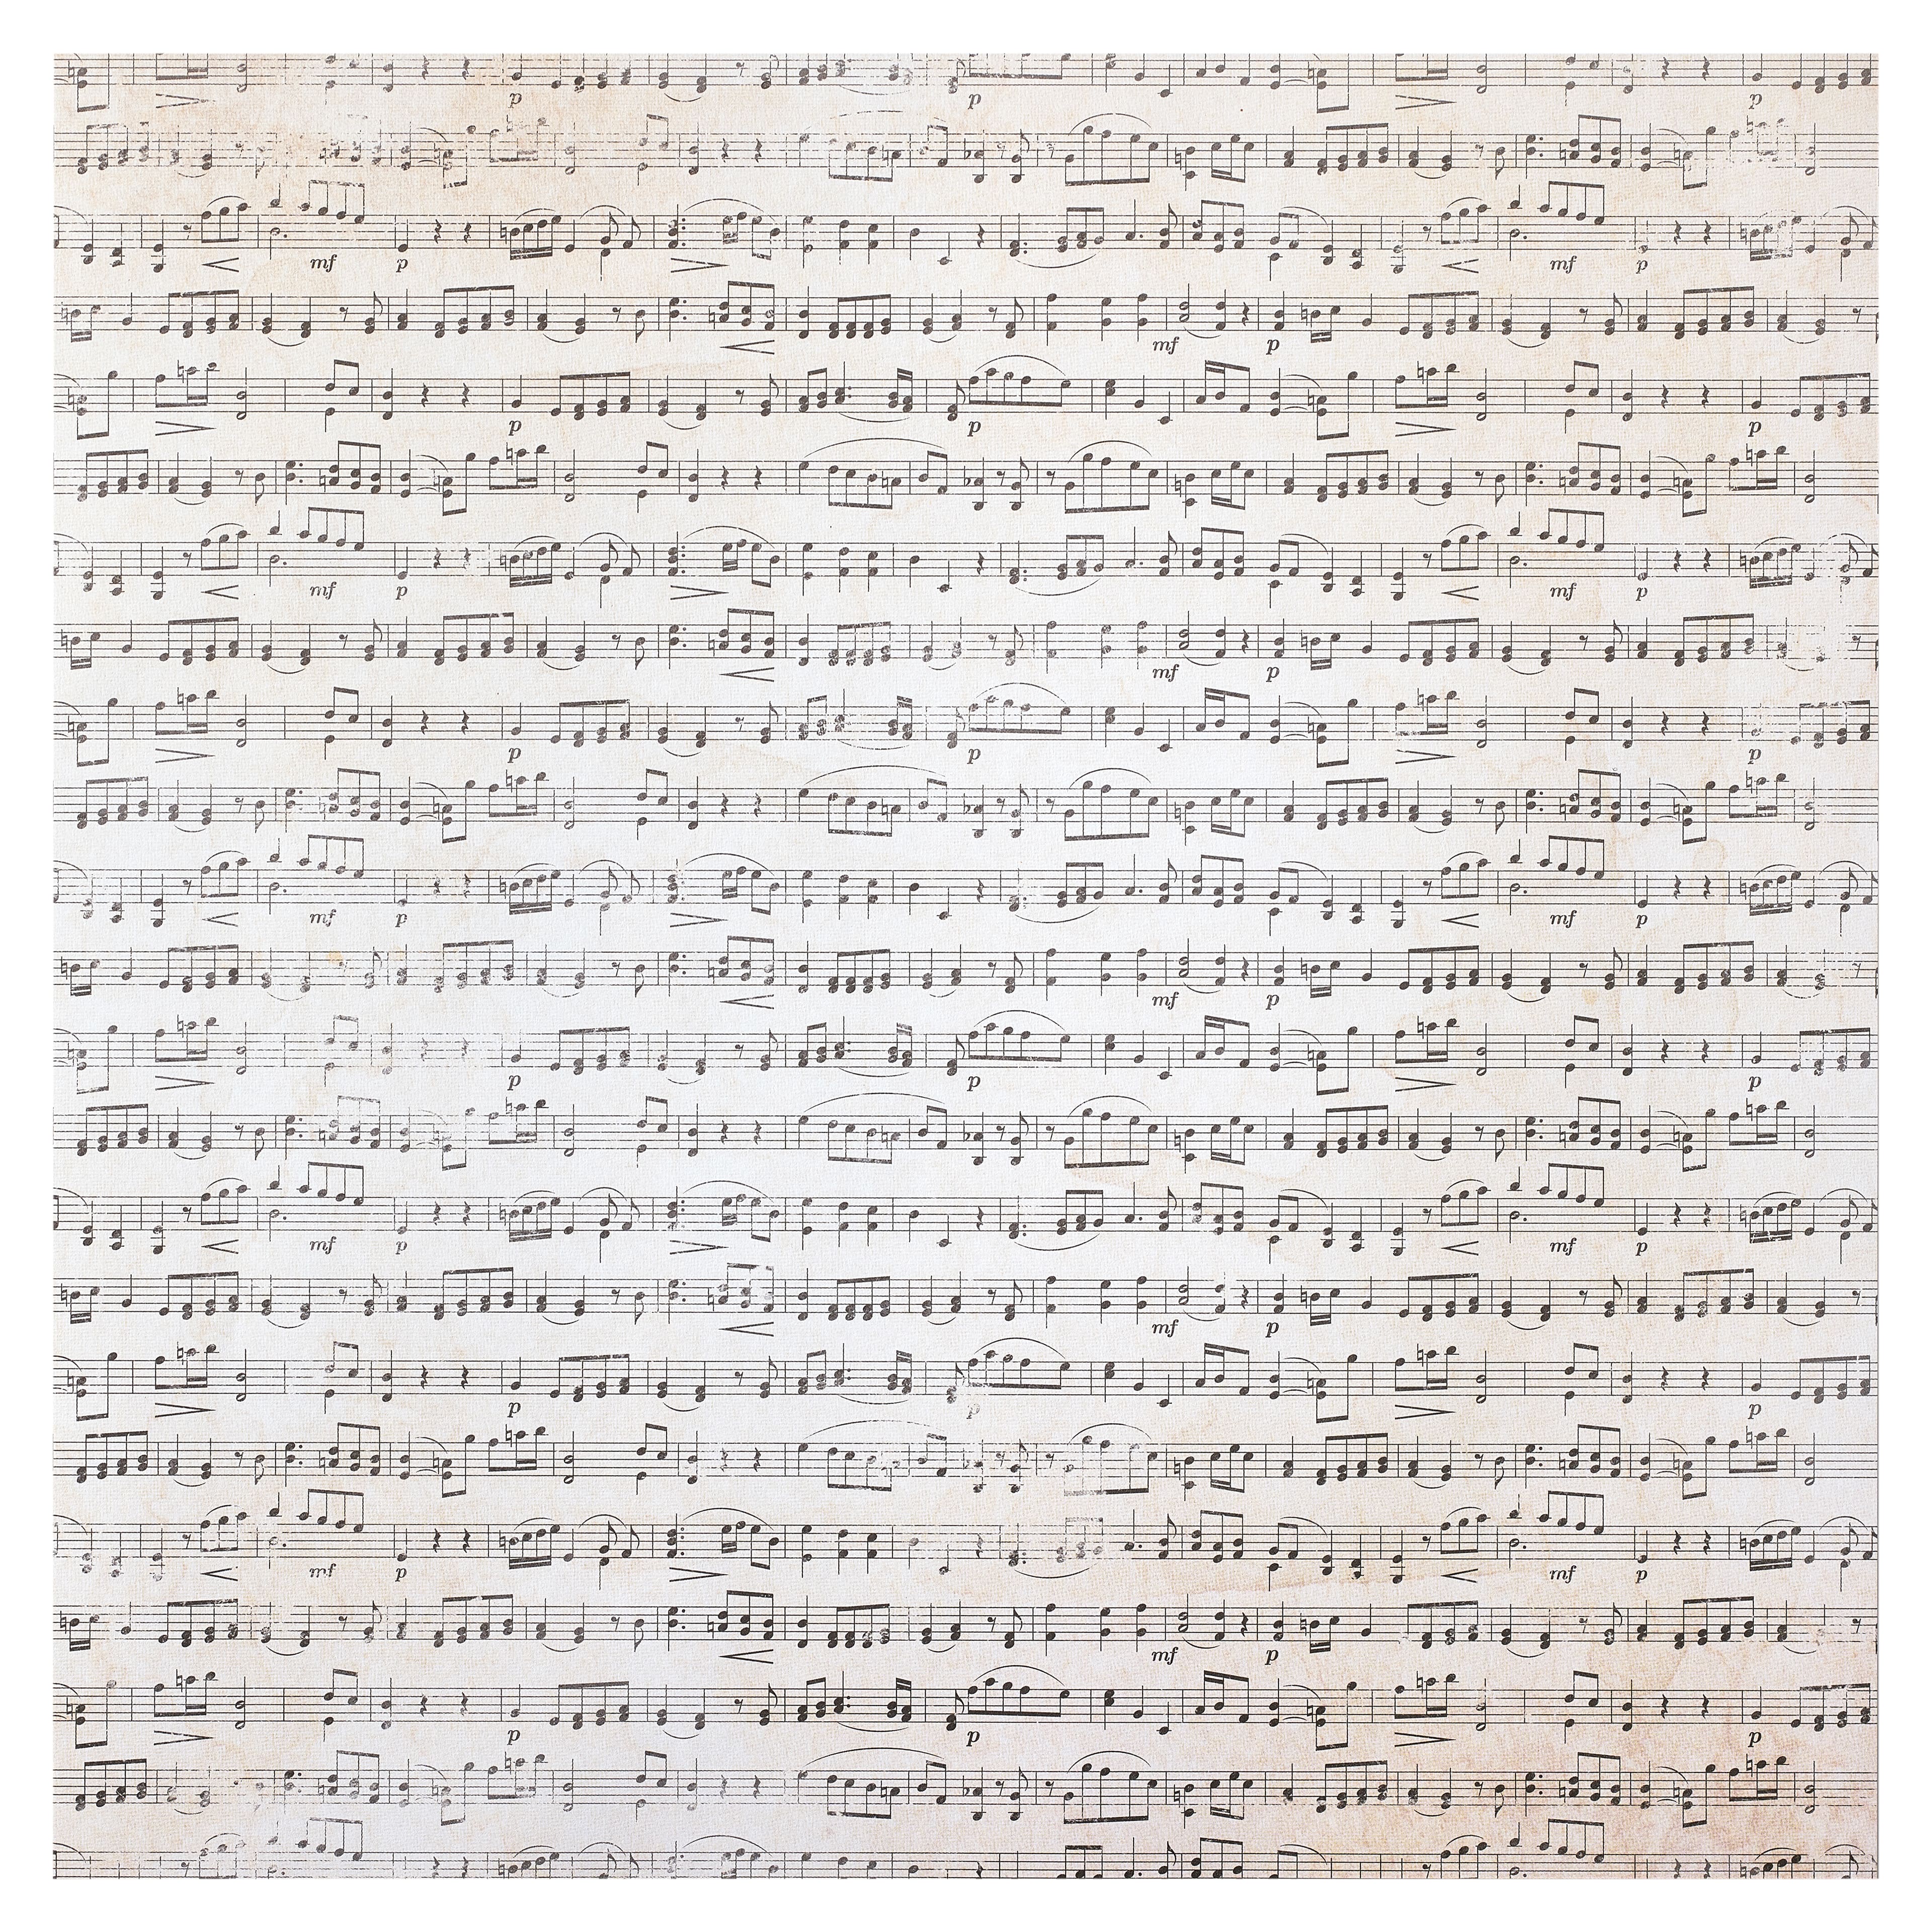 p p p
mf p mf p
mf p
p p p
mf p mf p
mf p
p p p
mf p mf p
mf p
p p p
mf p mf p
mf p
p p p
mf p mf p
mf p
p p p